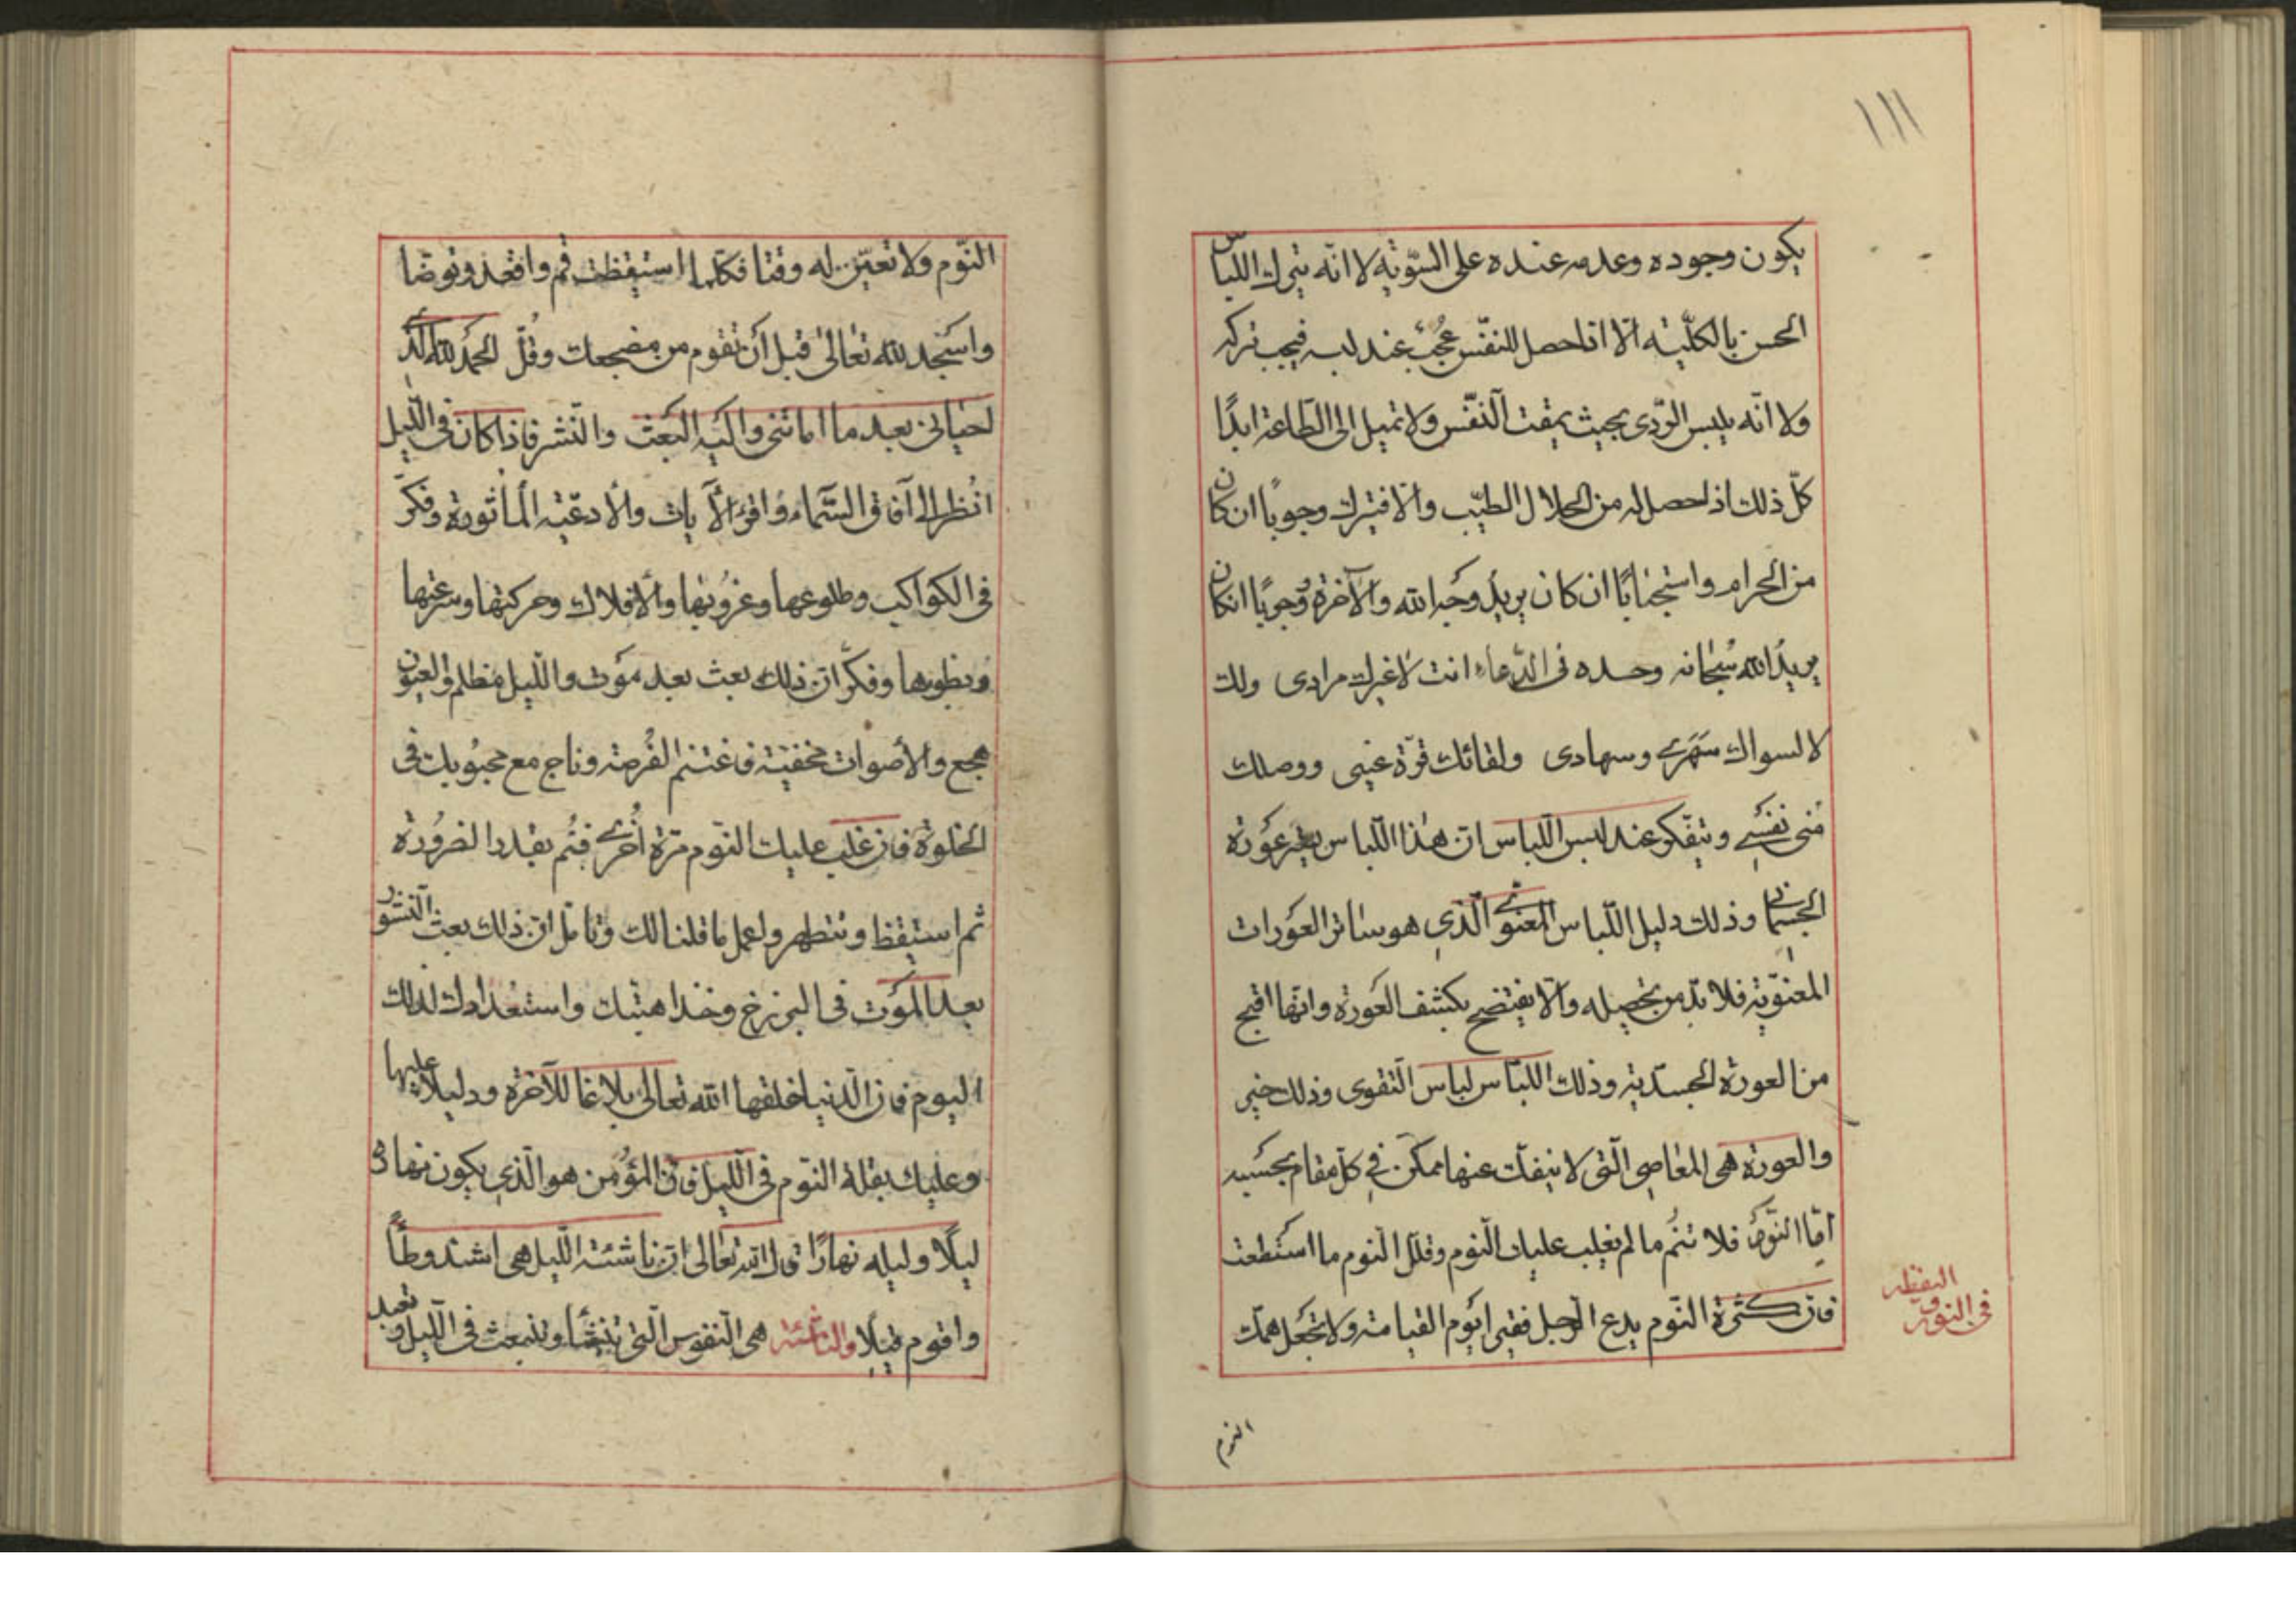 ١١١
يكون وجوده وعدمه عنده على السّويّه لا انّه يترك اللباس
الحسن بالكلّيّه الّا اذا حصل للنفس عُجبٌ عند لبسه فيجب تركه
ولا انّه يلبس الرّدى بحيث يمقت النّفس ولا تميل الى الطّاعة ابدًا
كلّ ذلك اذا حصل له من الحلال الطيّب والّا فيترك وجوبًا ان كان
من الحرام واستجنابًا ان كان يريد وجه الله والآخرة ووجوبًا ان كان
يريد الله سُبحانه وحده فى الدّعاء انت لا غيرك مرادى ولك
لا لسواك سَهَرى وسهادى ولقائك قرّة عينى ووصلك
مُنى نفسى ويتفكر عند لبس اللّباس انّ هذا اللّباس يستر عَورة
الجسمانى وذلك دليل اللّباس المعنوى الّذى هو ساتر العَورات
المعنويّة فلا بدّ من تحصيله والّا يفتضح بكشف العَورة وانّها اقبح
من العورة الجسديّة وذلك اللباس لباس التّقوى وذلك خير
والعورة هى المعاصى الّتى لا ينفكّ عنها ممكن فى كلّ مقام بحسبه
امّا النّوم فلا تنُم ما لم يغلب عليك النّوم وقلّل النّوم ما استطعت
فانّ كثرة النّوم يدع الرّجل فقيرا يَوم القيامة ولا تجعل همّك
فى النوم و
اليقظه
النوم
النّوم ولا تعيّن له وقتا فكلّما استيقظت قم واقعد وتوضّا
واسجد لله تعالى قبل ان تقوم من مضجعك وقُل الحمد لله الّذى
احيانى بعد ما اماتنى واليه البَعث والنّشر فاذا كان فى اللّيل
انُظر الى آفاق السّماء واقرء الآيات والادعيه المأثورة وفكّر
فى الكواكب وطلوعها وغروبها والافلاك وحركتها وسرعتها
وبطوءها وفكّر انّ ذلك بعث بعد مَوت واللّيل مظلم والعيون
هجع والأصوات مخفيّة فاغتنم الفُرصة وناج مع محبُوبك فى
الخلوة فان غلب عليك النّوم مرّة اُخرى فنُم بقدر الضرُورة
ثم استيقظ وتتطهر واعمل ما قلنا لك وتأمّل انّ ذلك بعث النشور
بعد المَوت فى البرزخ وخذ اهبتك واستعدادك لذلك
اليوم فان الدّنيا خلقها الله تعالى بلاغا للآخرة ودليلا عليها
وعليك بقلة النّوم فى اللّيل فانّ المؤمن هو الّذى يكون نهاره
ليلًا وليله نهارًا قال الله تعالى انّ ناشئة اللّيل هى اشدّ وطأً
واقوم قيلا والناشئة هى النّفوس الّتى تنشأ وتنبعث فى اللّيل وتعبد